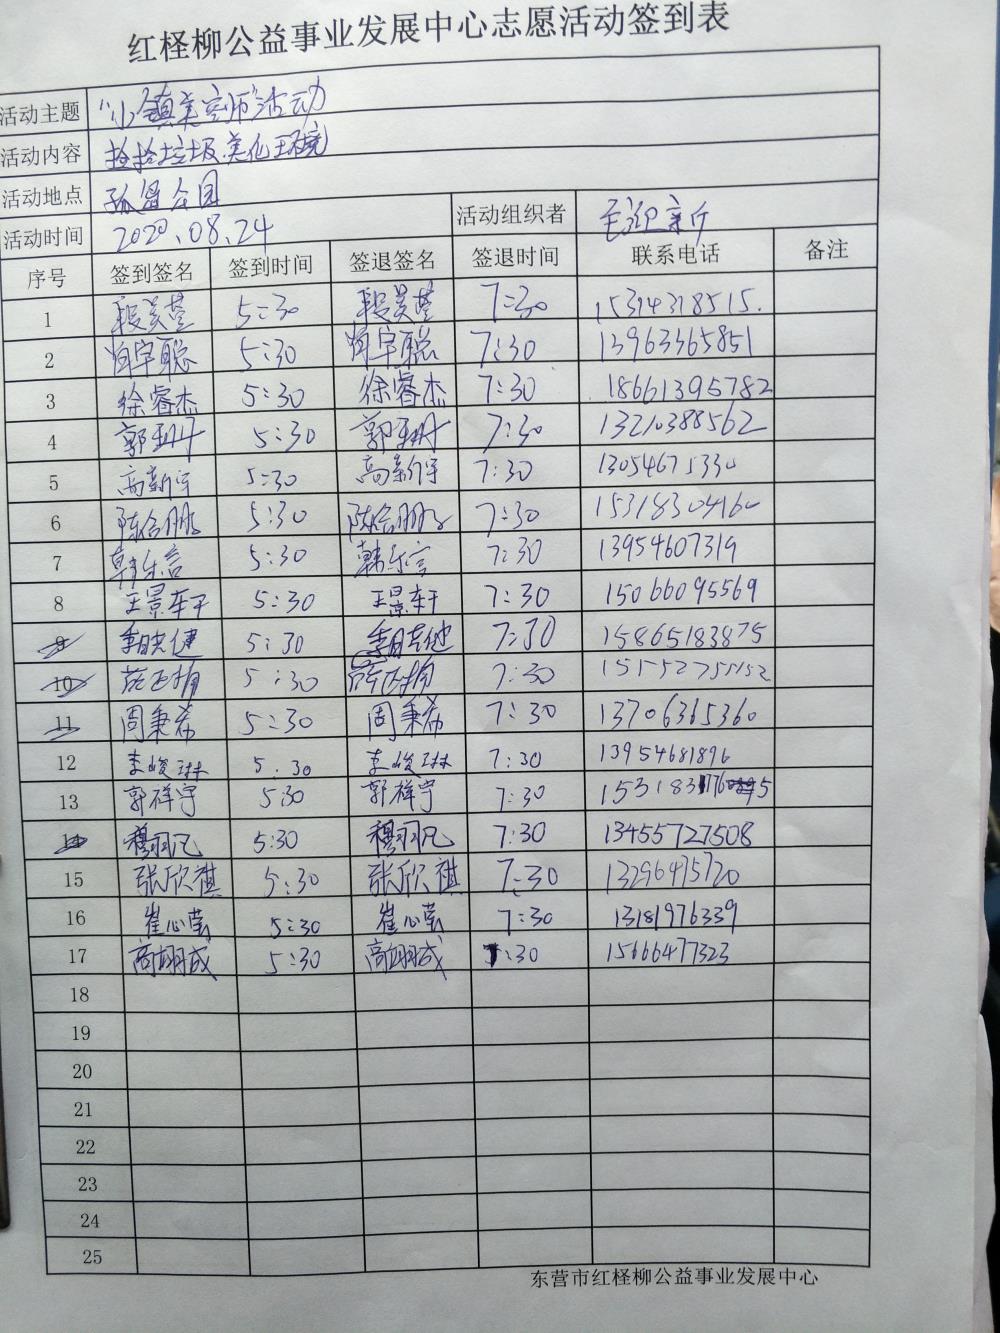 红柽柳公益事业发展中心志愿活动签到表
活动主题 "小镇美容师"活动
活动内容 捡拾垃圾.美化环境
活动地点 孤岛公园
活动时间 2020.08.24 活动组织者
序号 签到签名 签到时间 签退签名 签退时间 联系电话 备注
1 5:30 7:30 15314318515.
2 肖宇聪 5:30 肖宇聪 7:30 13963365851
3 徐睿杰 5:30 徐睿杰 7:30 18661395782
4 5:30 7:30 13210388562
5 高新宇 5:30 高新宇 7:30 13054675330
6 5:30 7:30 15318304160
7 韩乐言 5:30 韩乐言 7:30 13954607319
8 王景轩 5:30 王景轩 7:30 15066095569
9 5:30 7:30 15865183875
10 5:30 7:30
11 周秉希 5:30 周秉希 7:30 13706365360
12 李峻琳 5.30 李峻琳 7:30 13954681896
13 郭祥宇 5:30 郭祥宇 7:30
14 穆羽凡 5:30 穆羽凡 7:30 13455727508
15 张欣祺 5:30 张欣祺 7:30 13296475720
16 崔心莹 5:30 崔心莹 7:30 13181976339
17 高翊成 5:30 高翊成 7:30 15666477323
18
19
20
21
22
23
24
25
东营市红柽柳公益事业发展中心